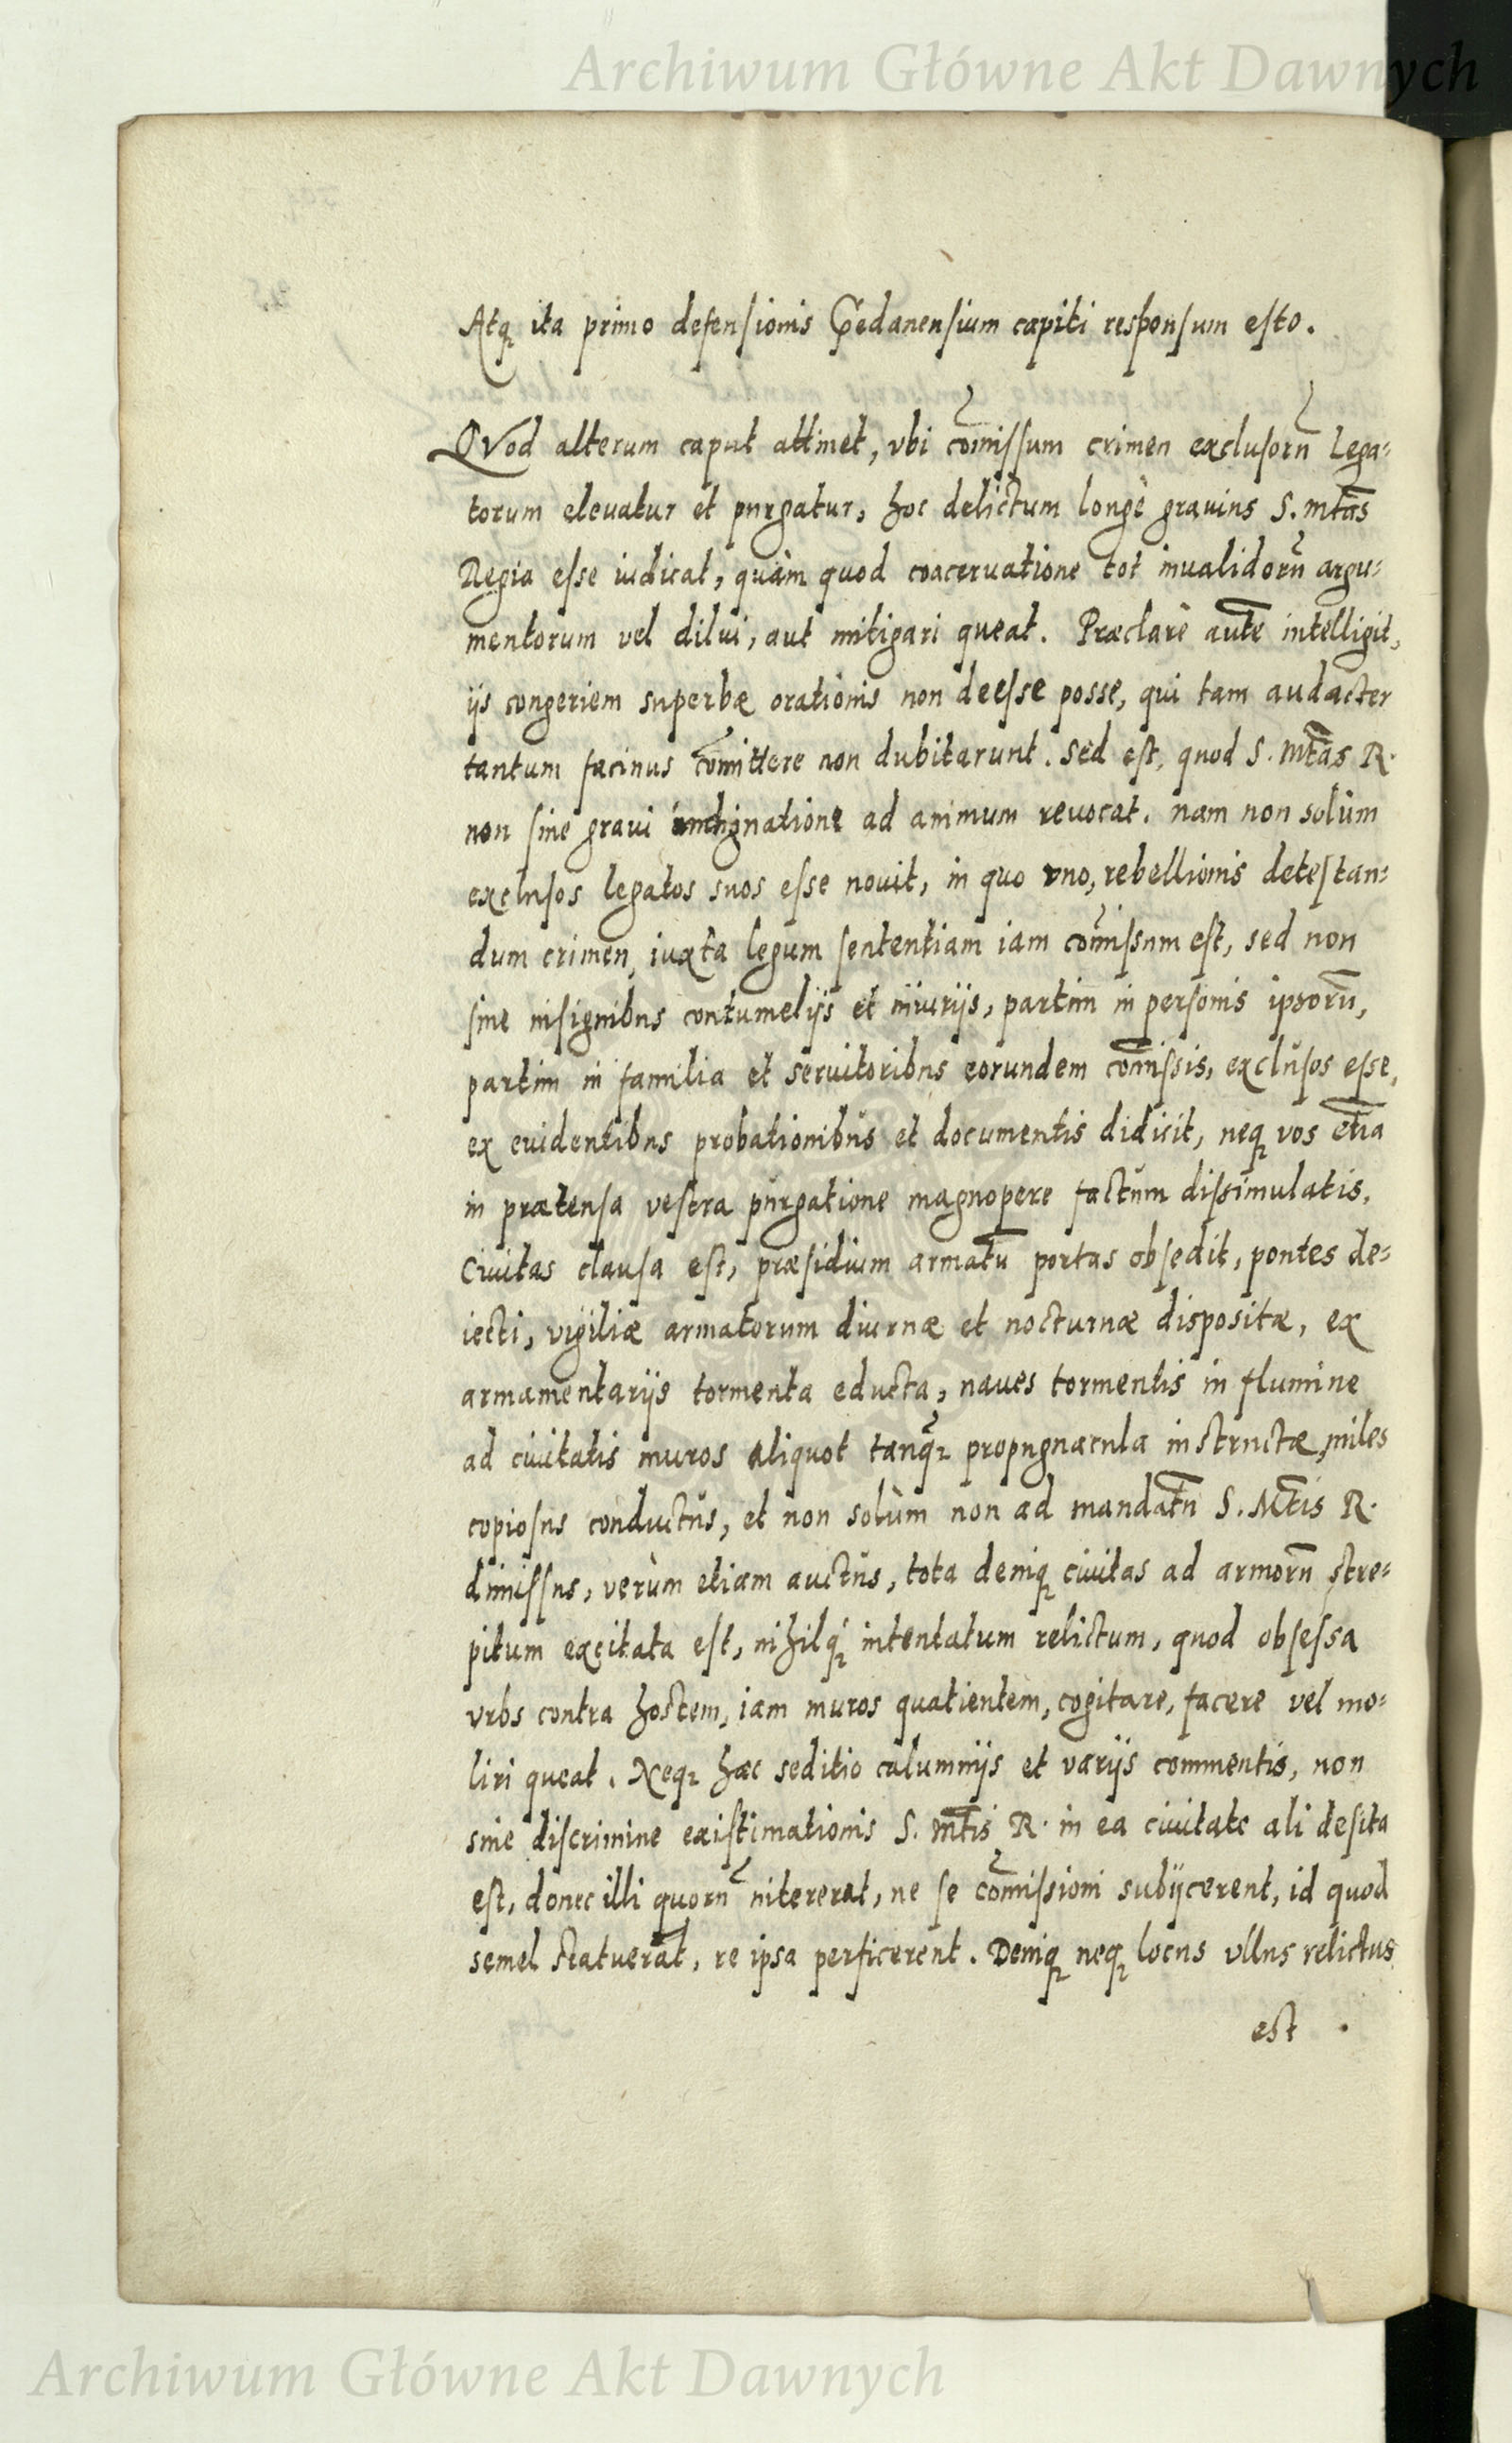 Archiwum Główne Akt Dawnych
Atq ita primo defensionis Gedanensium capiti responsum esto.
QVod alterum caput attinet, vbi com̃issum crimen exclusorũ Lega-
torum eleuatur et purgatur, hoc delictum longè grauius S. Mtãs
Regia esse iudicat, quàm quod coaceruatione tot inualidorũ argu-
mentorum vel dilui, aut mitigari queat. Præclarè autẽ intelligit,
ijs congeriem superbæ orationis non deesse posse, qui tam audacter
tantum facinus com̃ittere non dubitarunt. Sed est, quod S. Mtãs R.
non sine graui indignatione ad animum reuocat. nam non solùm
exclusos legatos suos esse nouit, in quo vno, rebellionis detestan-
dum crimen, iuxta legum sententiam iam com̃issum est, sed non
sine insignibus contumelijs et iniurijs, partim in personis ipsorũ,
partim in familia et seruitoribus eorundem com̃issis, exclusos esse,
ex euidentibus probationibus et documentis didicit, neq vos etiã
in prætensa vestra purgatione magnopere factum dissimulatis.
Ciuitas clausa est, præsidium armatũ portas obsedit, pontes de-
iecti, vigiliæ armatorum diurnæ et nocturnæ dispositæ, ex
armamentarijs tormenta educta, naues tormentis in flumine
ad ciuitatis muros aliquot tanq̃ propugnacula instructæ, miles
copiosus conductus, et non solùm non ad mandatũ S. Mtĩs R.
dimissus, verùm etiam auctus, tota deniq ciuitas ad armorũ stre-
pitum excitata est, nihilq́ intentatum relictum, quod obsessa
vrbs contra hostem, iam muros quatientem, cogitare, facere vel mo-
liri queat. Neq hæc seditio calumnijs et varijs commentis, non
sine discrimine existimationis S. Mtĩs R. in ea ciuitate ali desita
est, donec illi quorũ intererat, ne se com̃issioni subijcerent, id quod
semel statuerãt, re ipsa perficerent. Deniq neq locus vllus relictus
est
Archiwum Główne Akt Dawnych